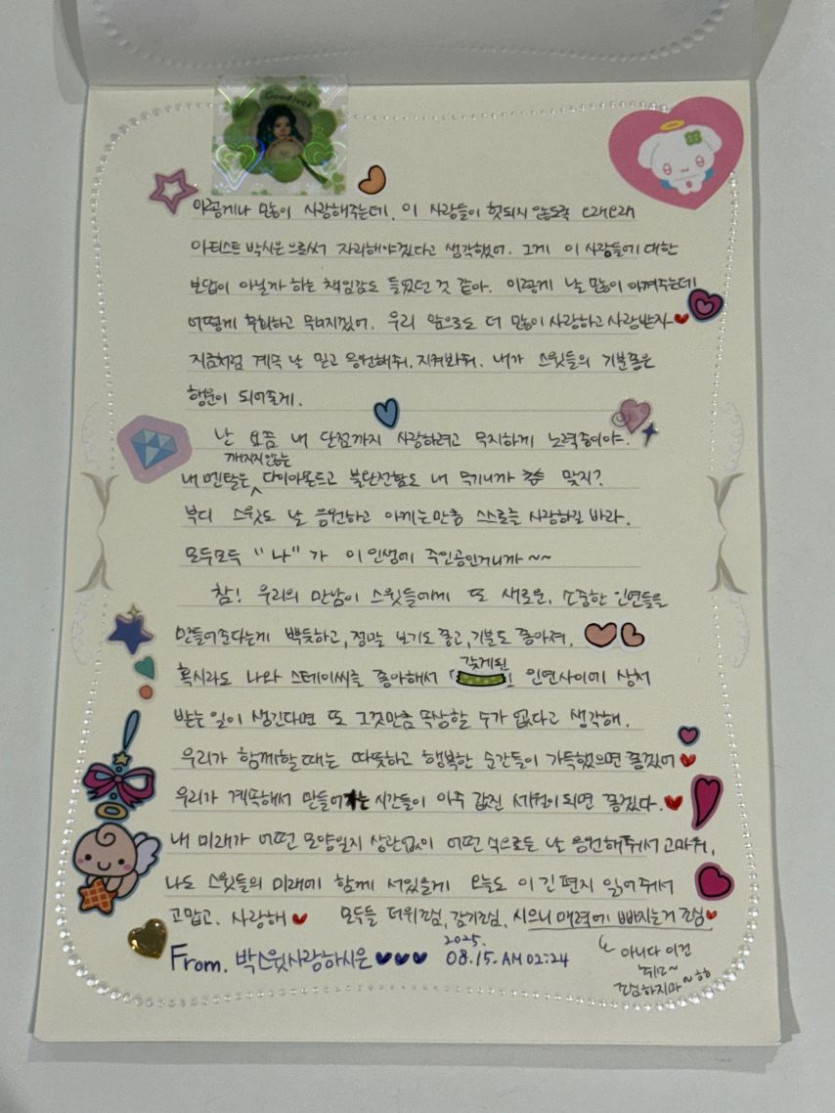 Good luck
이렇게나 많이 사랑해주는데, 이 사랑들이 헛되지 않도록 오래오래
아티스트 박시은으로써 자리해야겠다고 생각했어. 그게 이 사랑들에 대한
보답이 아닐까 하는 책임감도 들었던 것 같아. 이렇게 날 많이 아껴주는데
어떻게 후회하고 무너지겠어. 우리 앞으로도 더 많이 사랑하고 사랑받자❤️
지금처럼 계속 날 믿고 응원해줘, 지켜봐줘. 내가 스윗들의 기분좋은
행운이 되어줄게.
난 요즘 내 단점까지 사랑하려고 무지하게 노력중이야.
깨지지않는
내 멘탈은 다이아몬드고 불완전함도 내 무기니까 맞지?
부디 스윗도 날 응원하고 아끼는만큼 스스로를 사랑하길 바라.
모두모두 "나"가 이 인생에 주인공인거니까~~
참! 우리의 만남이 스윗들에게 또 새로운, 소중한 인연들을
만들어준다는게 뿌듯하고, 정말 보기도 좋고, 기분도 좋아져.
혹시라도 나와 스테이씨를 좋아해서 갖게된 인연사이에 상처
받는 일이 생긴다면 또 그것만큼 속상할 수가 없다고 생각해.
우리가 함께할 때는 따뜻하고 행복한 순간들이 가득했으면 좋겠어❤️
우리가 계속해서 만들어가는 시간들이 아주 값진 세월이 되면 좋겠다.❤️
내 미래가 어떤 모양일지 상관없이 어떤 식으로든 날 응원해줘서 고마워,
나도 스윗들의 미래에 함께 서있을게 오늘도 이 긴 편지 읽어줘서
고맙고, 사랑해❤️ 모두들 더위조심, 감기조심, 시으니 매력에 빠지는거 조심❤️
From. 박스윗사랑하시은♥♥♥ 2025. 08.15. AM 02:24
아니다 이건
취소~
조심하지마~ㅎㅎ